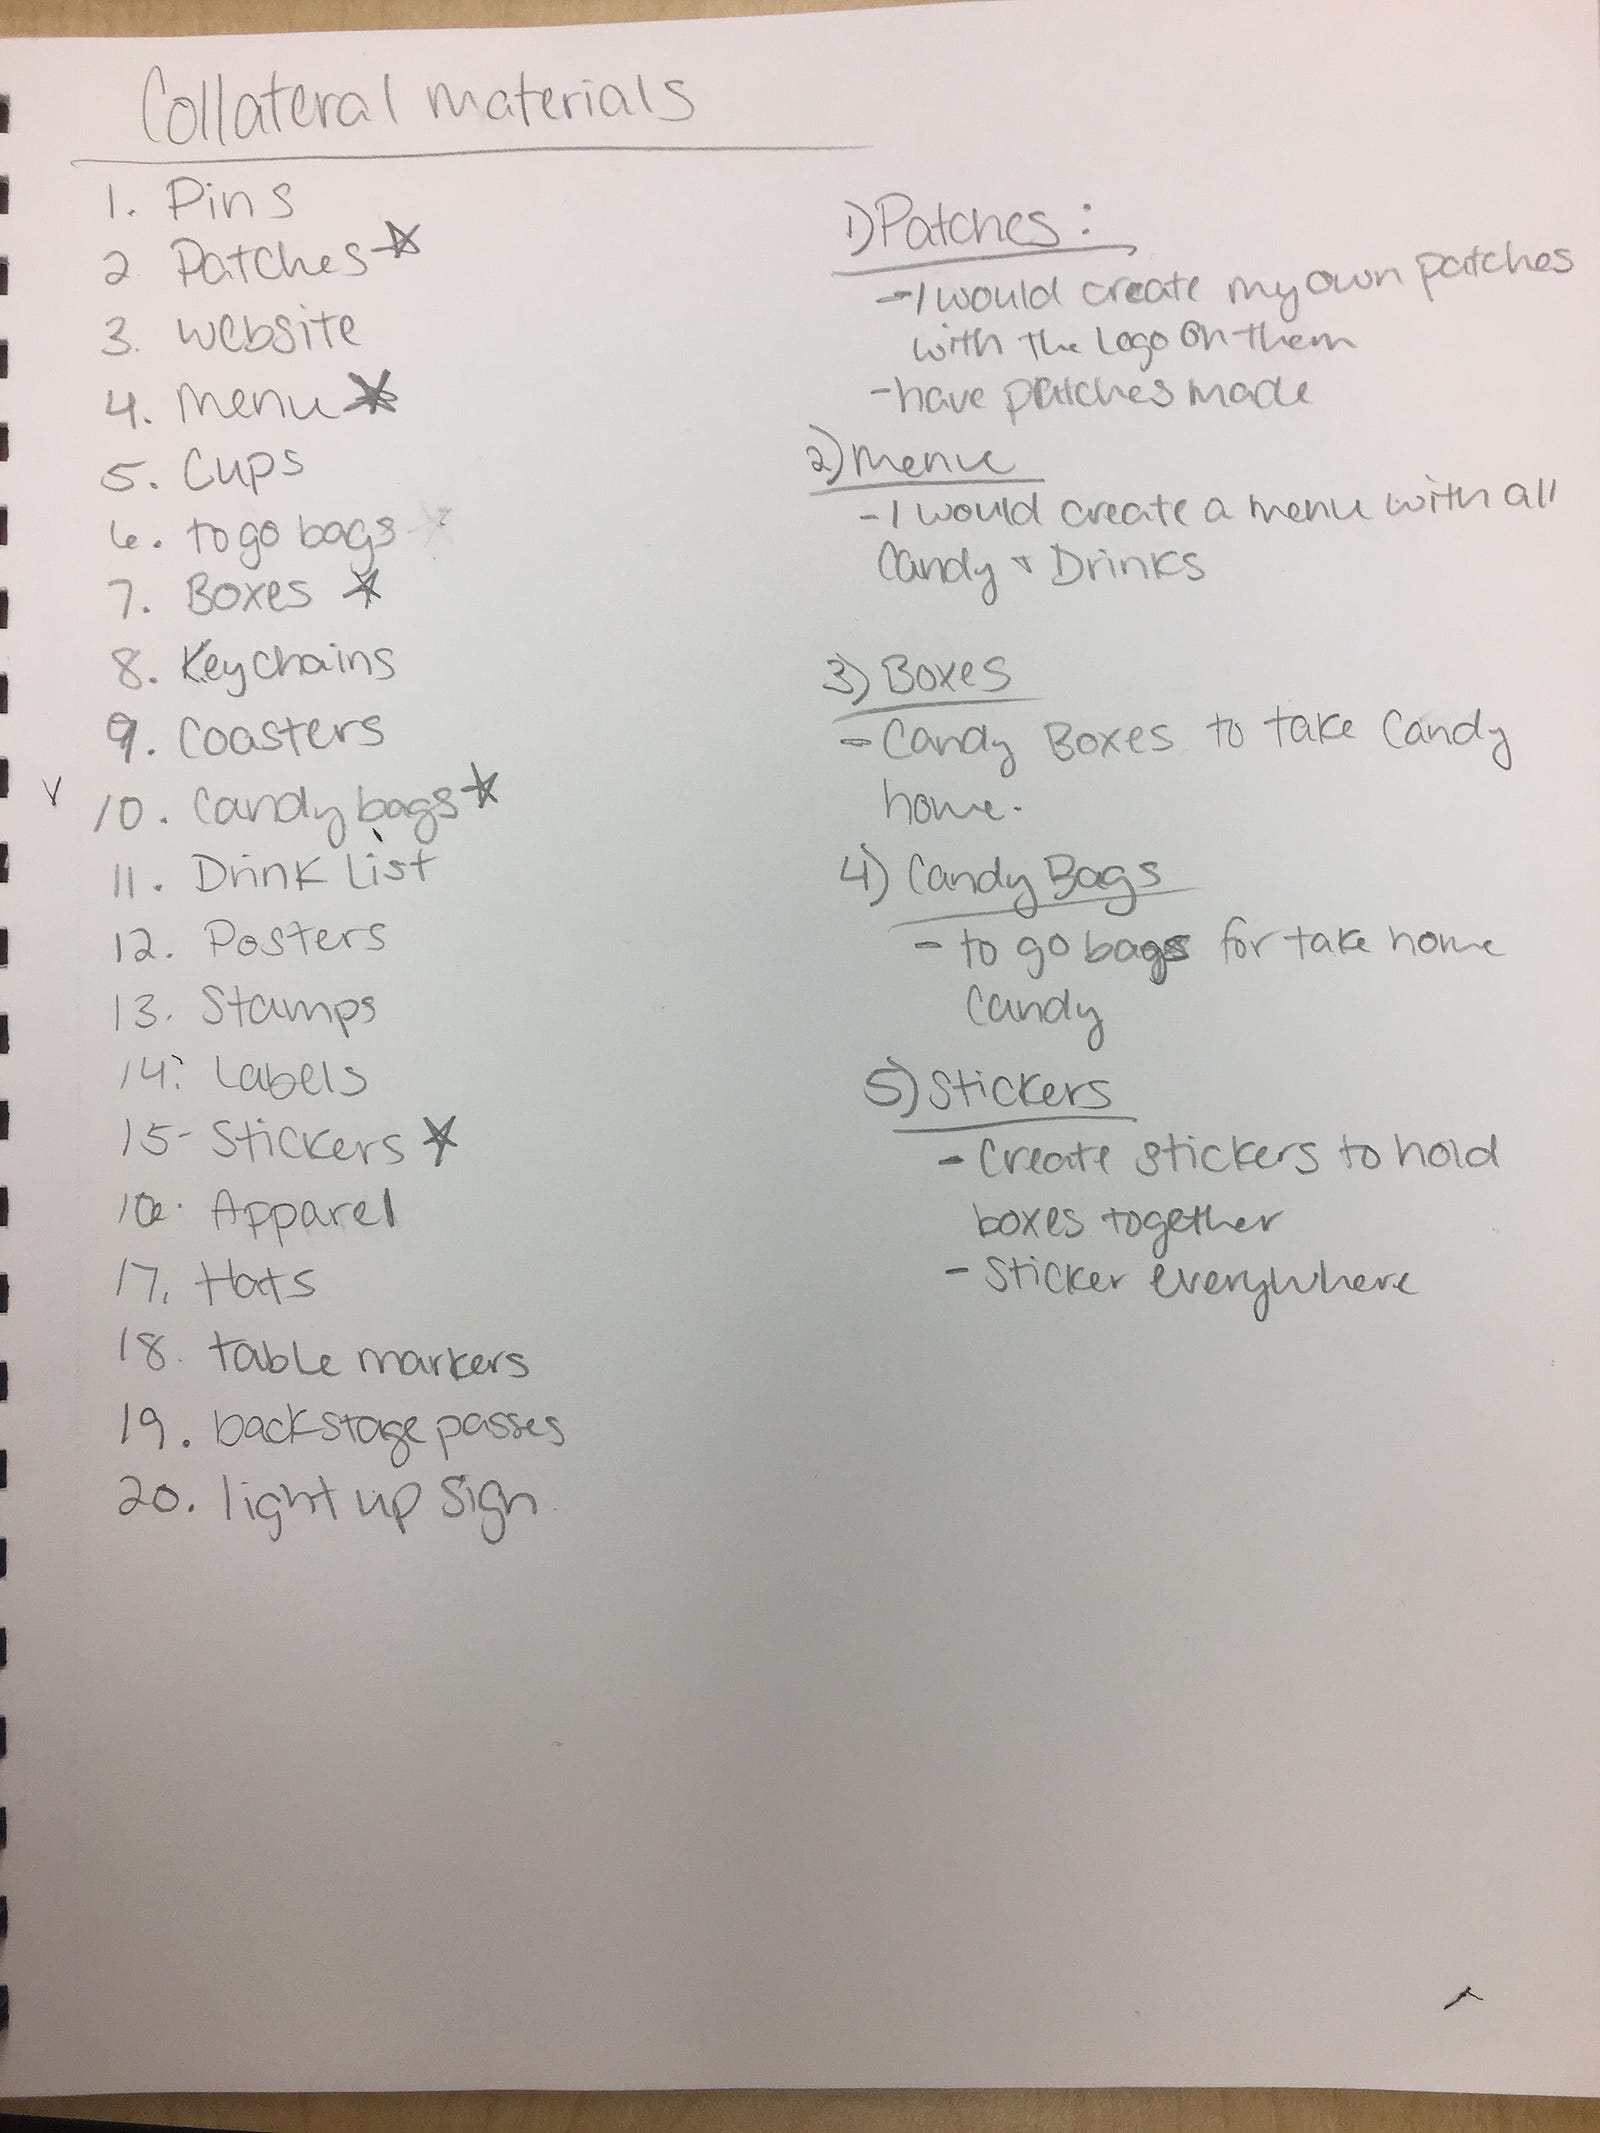 Collateral materials
1. Pins
2 Patches
3. website
4. menu
5. Cups
6. to go bags
7. Boxes
8. Keychains
9. Coasters
10. Candy bags
11. Drink List
12. Posters
13. Stamps
14. Labels
15- Stickers
16. Apparel
17. Hats
18. table markers
19. backstage passes
20. light up sign
1) Patches:
- I would create my own patches
with the Logo on them
- have patches made
2) menu
- I would create a menu with all
Candy + Drinks
3) Boxes
- Candy Boxes to take Candy
home.
4) Candy Bags
- to go bags for take home
Candy
5) Stickers
- Create stickers to hold
boxes together
- Sticker everywhere